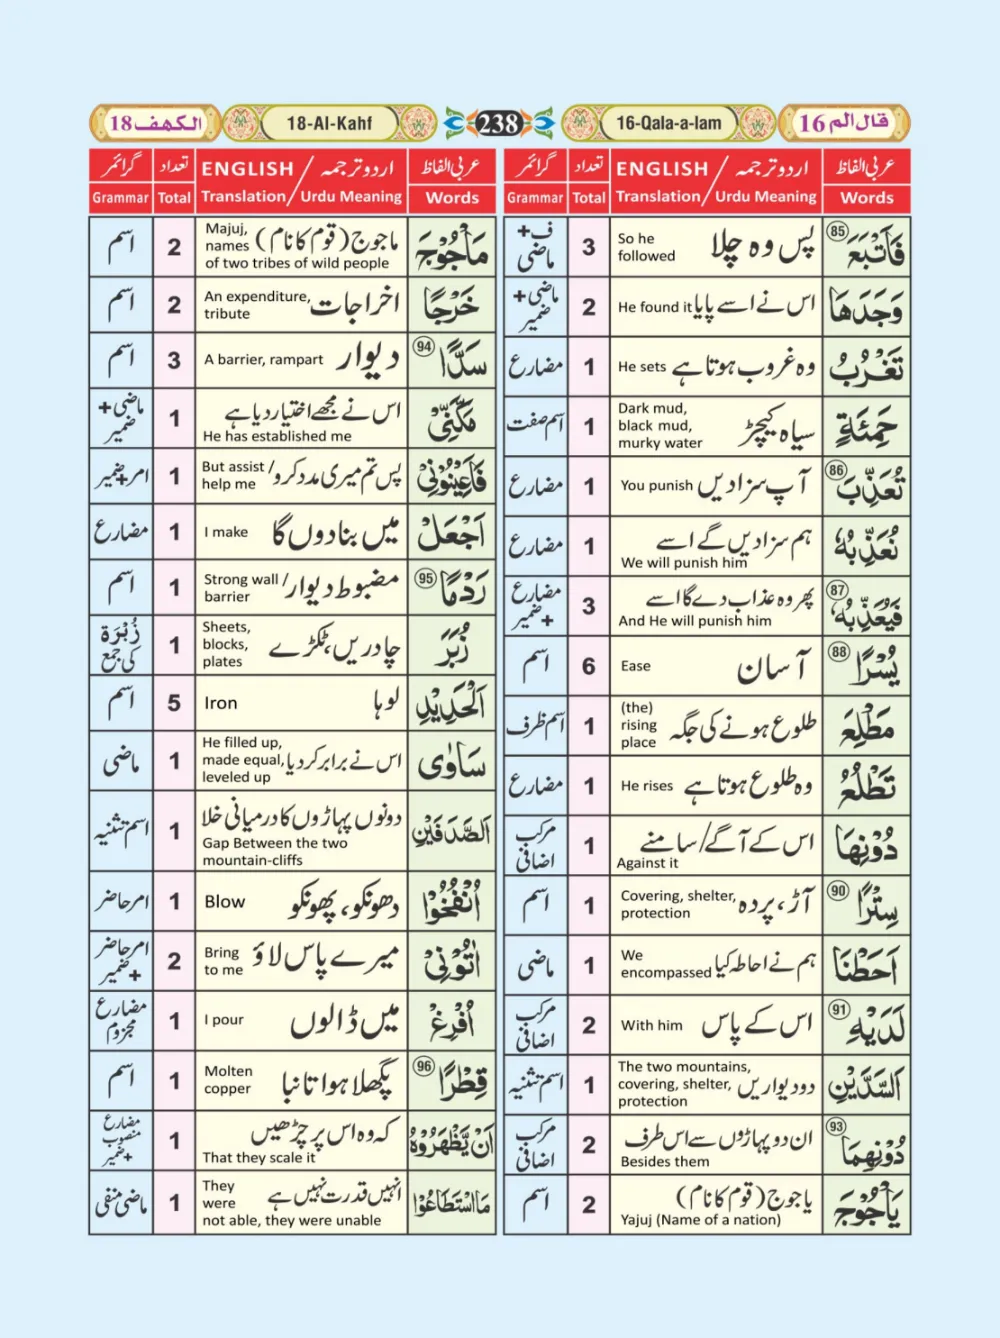 الكهف 18
18-Al-Kahf
238
16-Qala-a-lam
قال الم 16
عربی الفاظ اردو ترجمہ / ENGLISH تعداد گرائمر
Words Urdu Meaning / Translation Total Grammar
فَاَتْبَعَ ۸۵ پس وہ چلا So he followed 3 ف+ ماضی
وَجَدَهَا اس نے اسے پایا He found it 2 ماضی+ ضمیر
تَغْرُبُ وہ غروب ہوتا ہے He sets 1 مضارع
حَمِئَةٍ سیاہ کیچڑ Dark mud, black mud, murky water 1 اسم صفت
تُعَذِّبَ 86 آپ سزا دیں You punish 1 مضارع
نُعَذِّبُهٗ ہم سزا دیں گے اسے We will punish him 1 مضارع
فَيُعَذِّبُهٗ 87 پھر وہ عذاب دے گا اسے And He will punish him 3 مضارع + ضمیر
يُسْرًا 88 آسان Ease 6 اسم
مَطْلِعَ طلوع ہونے کی جگہ (the) rising place 1 اسم ظرف
تَطْلُعُ وہ طلوع ہوتا ہے He rises 1 مضارع
دُوْنِهَا اس کے آگے/سامنے Against it 1 مرکب اضافی
سِتْرًا 90 آڑ، پردہ Covering, shelter, protection 1 اسم
اَحَطْنَا ہم نے احاطہ کیا We encompassed 1 ماضی
لَدَيْهِ 91 اس کے پاس With him 2 مرکب اضافی
السَّدَّيْنِ دو دیواریں The two mountains, covering, shelter, protection 1 اسم تثنیہ
دُوْنِهِمَا 93 ان دو پہاڑوں سے اس طرف Besides them 2 مرکب اضافی
يَاْجُوْجَ یاجوج (قوم کا نام) Yajuj (Name of a nation) 2 اسم
عربی الفاظ اردو ترجمہ / ENGLISH تعداد گرائمر
Words Urdu Meaning / Translation Total Grammar
مَاْجُوْجَ ماجوج (قوم کا نام) Majuj, names of two tribes of wild people 2 اسم
خَرْجًا اخراجات An expenditure, tribute 2 اسم
سَدًّا 94 دیوار A barrier, rampart 3 اسم
مَكَّنِّيْ اس نے مجھے اختیار دیا ہے He has established me 1 ماضی+ ضمیر
فَاَعِيْنُوْنِيْ پس تم میری مدد کرو / But assist help me 1 امر+ضمیر
اَجْعَلْ میں بنا دوں گا I make 1 مضارع
رَدْمًا 95 مضبوط دیوار / Strong wall barrier 1 اسم
زُبَرَ چادریں، ٹکڑے Sheets, blocks, plates 1 زُبْرَة کی جمع
الْحَدِيْدِ لوہا Iron 5 اسم
سَاوٰى اس نے برابر کردیا He filled up, made equal, leveled up 1 ماضی
الصَّدَفَيْنِ دونوں پہاڑوں کا درمیانی خلا Gap Between the two mountain-cliffs 1 اسم تثنیہ
انْفُخُوْا دھونکو، پھونکو Blow 1 امر حاضر
اٰتُوْنِيْ میرے پاس لاؤ Bring to me 2 امر حاضر + ضمیر
اُفْرِغْ میں ڈالوں I pour 1 مضارع مجزوم
قِطْرًا 96 پگھلا ہوا تانبا Molten copper 1 اسم
اَنْ يَّظْهَرُوْهُ کہ وہ اس پر چڑھیں That they scale it 1 مضارع منصوب +ضمیر
مَا اسْتَطَاعُوْا انہیں قدرت نہیں ہے They were not able, they were unable 1 ماضی منفی